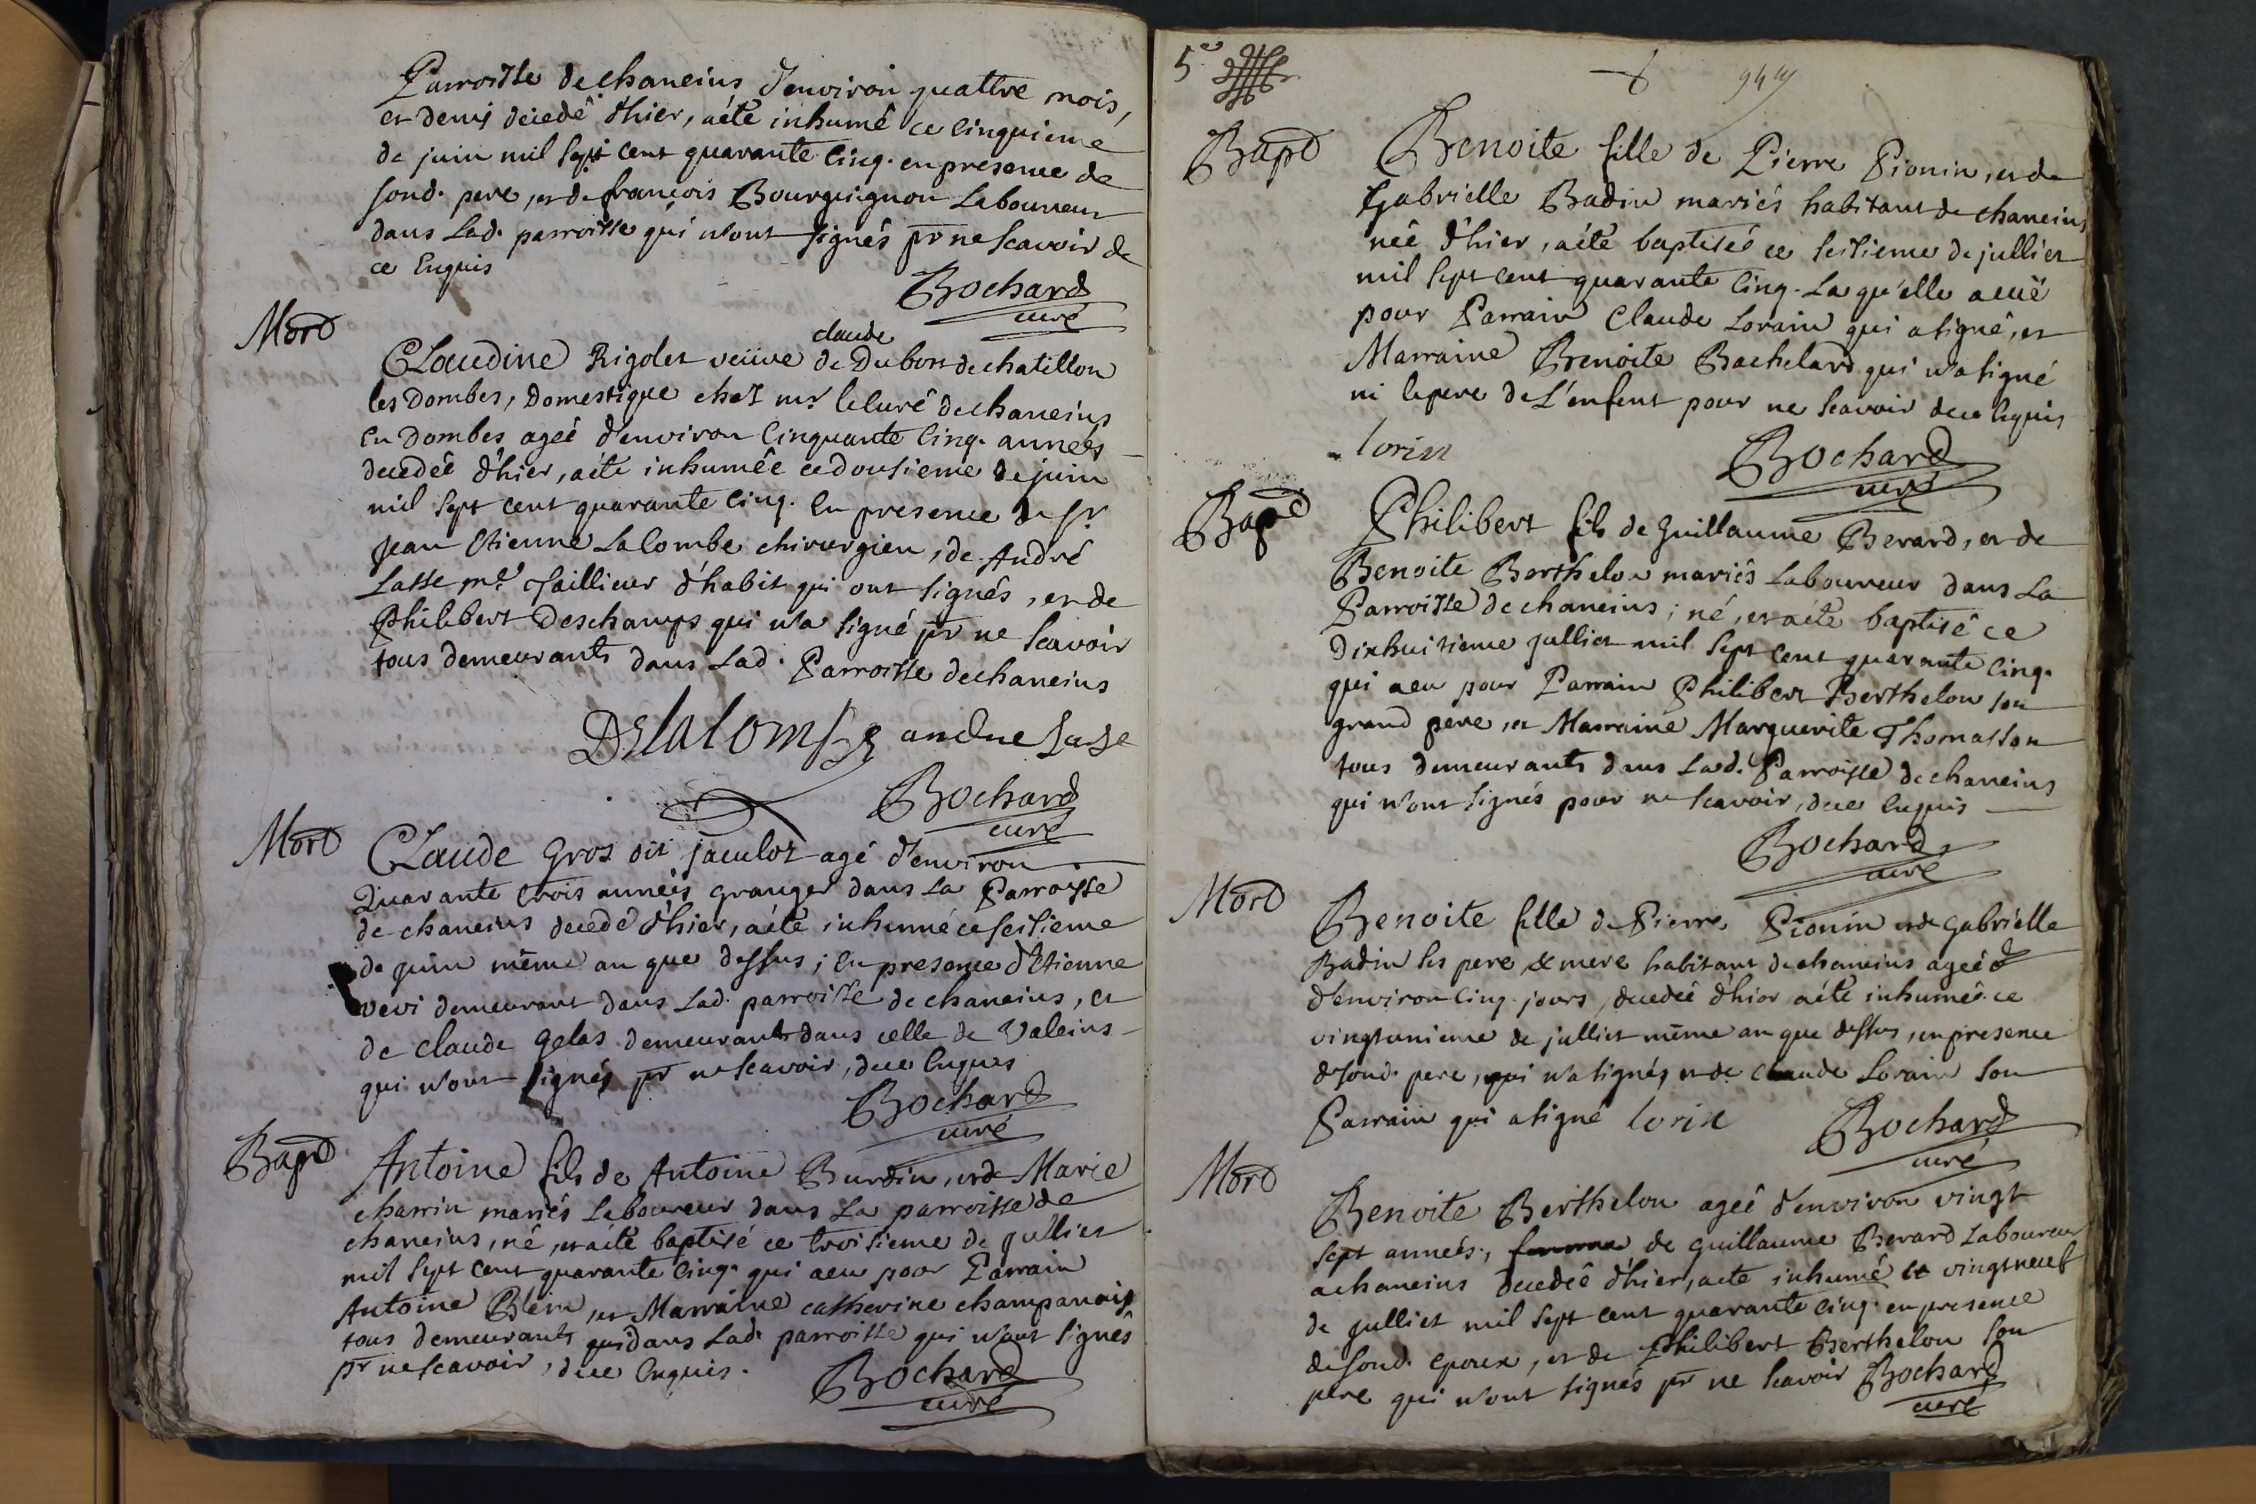 Parroisse de chaneins d'environ quattre mois,
et demi décedé d'hier, a été inhumé ce cinquieme
de juin mil sept cent quarante cinq. en presence de
sond. pere, et de françois Bourguignon Laboureur
dans Lad. parroisse qui n'ont signés pr ne scavoir de
ce Enquis
Bochard
curé
Mord
claude
CLaudine Rigolet veüve de Dubost de chatillon
les Dombes, Domestique chez mr le Curé de chaneins
En Dombes ageé d'environ Cinquante Cinq. années
decedée d'hier, a été inhumêe ce dousieme de juin
mil sept cent quarante cinq. En presence de sr.
jean Etienne Lacombe chirurgien, de André
Lasse me. Taillieur d'habit qui ont signés, et de
Philibert Deschamps qui n'a signé pr ne scavoir
tous demeurants dans Lad. Parroisse de chaneins
Delalombe andrie Lase
Bochard
curé
Mord
CLaude Gros dit jaculot agé d'environ
Quarante trois années granger dans La Parroisse
de chaneins decedé d'hier, a été inhumé ce seisieme
de juin même an que dessus; En presence d'Etienne
vevi demeurant dans Lad. parroisse de chaneins, et
de claude gelas demeurant dans celle de Valeins
qui n'ont signés pr ne scavoir, de ce Enques
Bochard
curé
Bapd
Antoine fils de Antoine Burdin, et de Marie
charrin mariés Laboureur dans La parroisse de
chaneins, né, et a été baptisé ce troisieme de jullier
mil sept cent quarante cinq. qui a eu pour Parrain
Antoine Blein, et Marraine catherine champanois
tous demeurants dans Lad. parroisse qui n'ont signés
pr ne scavoir, de ce Enquis.
Bochard
curé
5e
Bapd
Benoite fille de Pierre Pionin, et de
Gabrielle Badin mariés habitant de chaneins
née d'hier, a été baptisée ce seisieme de jullier
mil sept cent quarante cinq. La qu'elle a euë
pour Parrain Claude Lorain qui a signé, et
Marraine Benoite Bachelard qui n'a signé
ni le pere de L'enfent pour ne scavoir de ce Enquis
lorin
Bochard
curé
Bapd
Philibert fils de Guillaume Berard, et de
Benoite Berthelon mariés Laboureur dans La
Parroisse de chaneins; né, et a été baptisé ce
Dixhuitieme jullier mil sept cent quarante cinq.
qui a eu pour Parrain Philibert Berthelon son
grand pere, et Marraine Marguerite Thomasson
tous demeurants dans Lad. Parroisse de chaneins
qui n'ont signés pour ne scavoir, de ce Enquis
Bochard
curé
Mord
Benoite fille de Pierre Pionin et de Gabrielle
Badin ses pere & mere habitant de chaneins ageé
d'environ cinq. jours, decedée d'hier a été inhumée ce
vingtunieme de jullier même an que dessus, en presence
de sond. pere, qui n'a signés et de claude Lorain son
Parrain qui a signé lorin
Bochard
curé
Mord
Benoite Berthelon ageé d'environ vingt
sept années, femme de Guillaume Berard Laboureur
a chaneins decedée d'hier, a été inhumé le vingtneuf
de jullier mil sept cent quarante cinq. en presence
de sond. epoux, et de Philibert Berthelon son
pere qui n'ont signés pr ne scavoir Bochard
curé